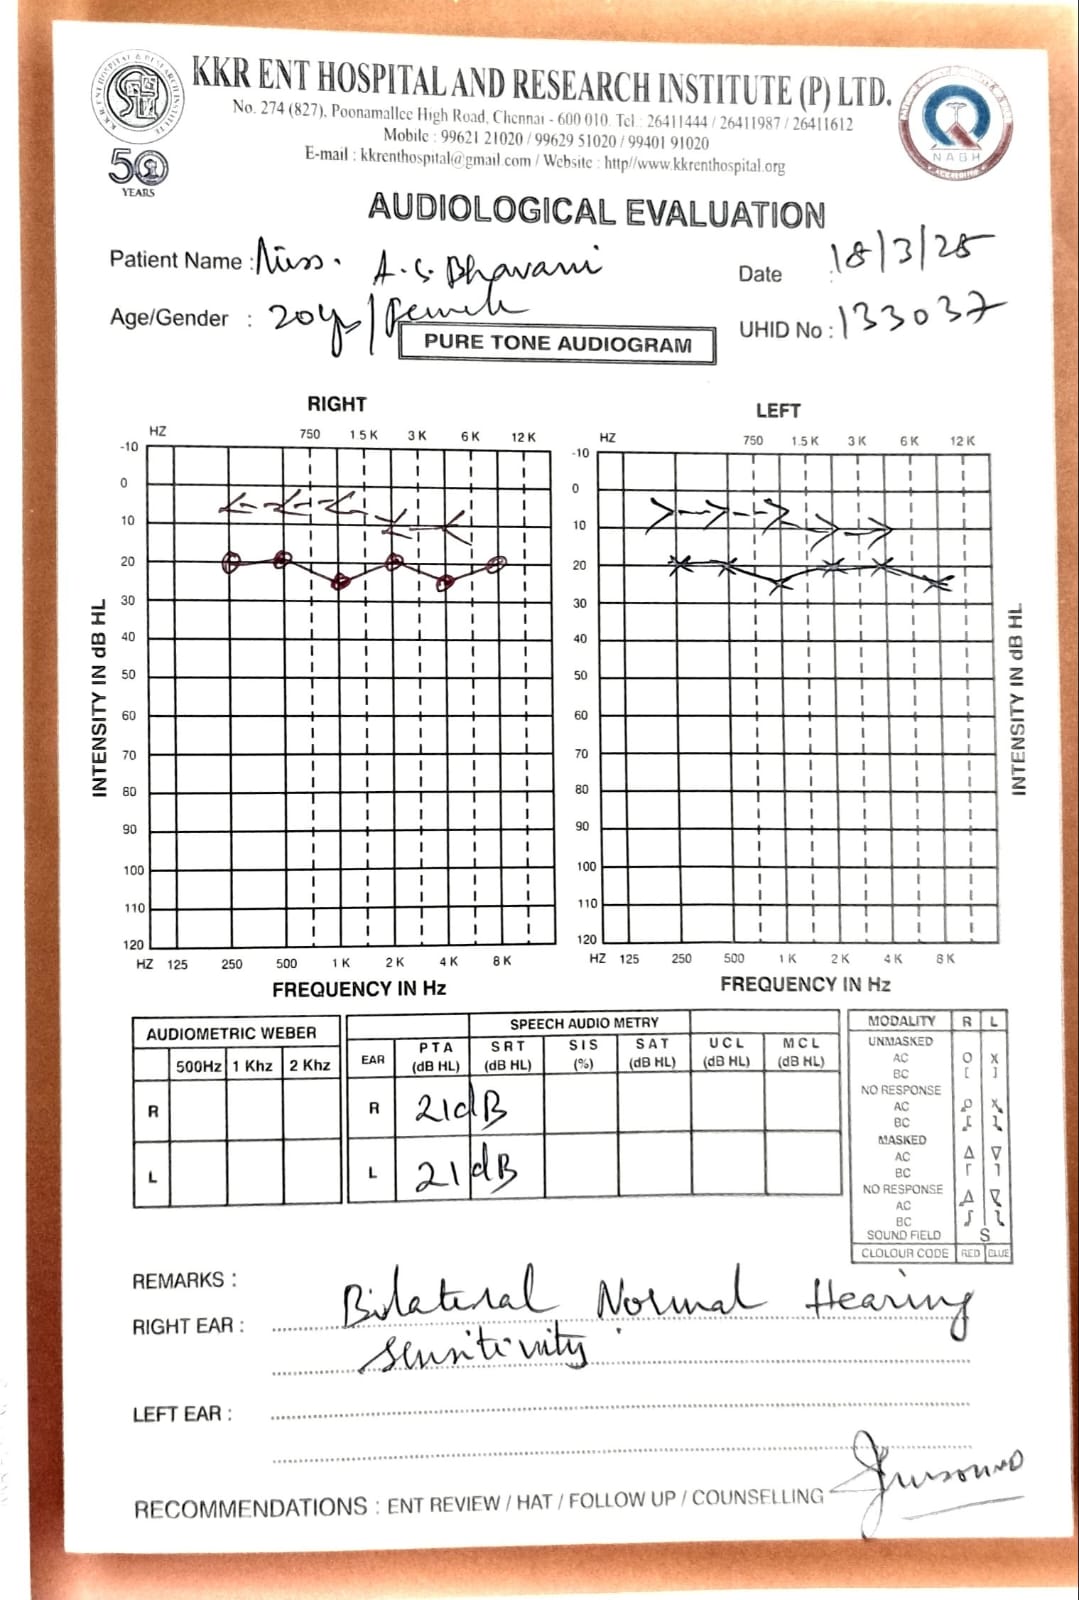 KKR ENT HOSPITAL AND RESEARCH INSTITUTE (P) LTD.
No. 274 (827), Poonamallee High Road, Chennai - 600 010. Tel : 26411444 / 26411987 / 26411612
Mobile : 99621 21020 / 99629 51020 / 99401 91020
E-mail : kkrenthospital@gmail.com / Website : http//www.kkrenthospital.org
50
YEARS
NABH
AUDIOLOGICAL EVALUATION
Patient Name : Miss. A.S. Bhavani
Date : 18/3/25
Age/Gender : 20y/Female
UHID No : 133037
PURE TONE AUDIOGRAM
RIGHT LEFT
HZ 750 1.5 K 3 K 6 K 12 K HZ 750 1.5 K 3 K 6 K 12 K
-10 -10
0 0
10 10
20 20
30 30
40 40
50 50
60 60
70 70
80 80
90 90
100 100
110 110
120 120
INTENSITY IN dB HL
INTENSITY IN dB HL
HZ 125 250 500 1 K 2 K 4 K 8 K HZ 125 250 500 1 K 2 K 4 K 8 K
FREQUENCY IN Hz FREQUENCY IN Hz
AUDIOMETRIC WEBER
500Hz 1 Khz 2 Khz
R
L
SPEECH AUDIO METRY
EAR PTA (dB HL) SRT (dB HL) SIS (%) SAT (dB HL) UCL (dB HL) MCL (dB HL)
R 21dB
L 21dB
MODALITY R L
UNMASKED
AC O X
BC [ ]
NO RESPONSE
AC
BC
MASKED
AC Δ ∇
BC
NO RESPONSE
AC
BC
SOUND FIELD S
CLOLOUR CODE RED BLUE
REMARKS :
RIGHT EAR : Bilateral Normal Hearing
Sensitivity
LEFT EAR :
RECOMMENDATIONS : ENT REVIEW / HAT / FOLLOW UP / COUNSELLING